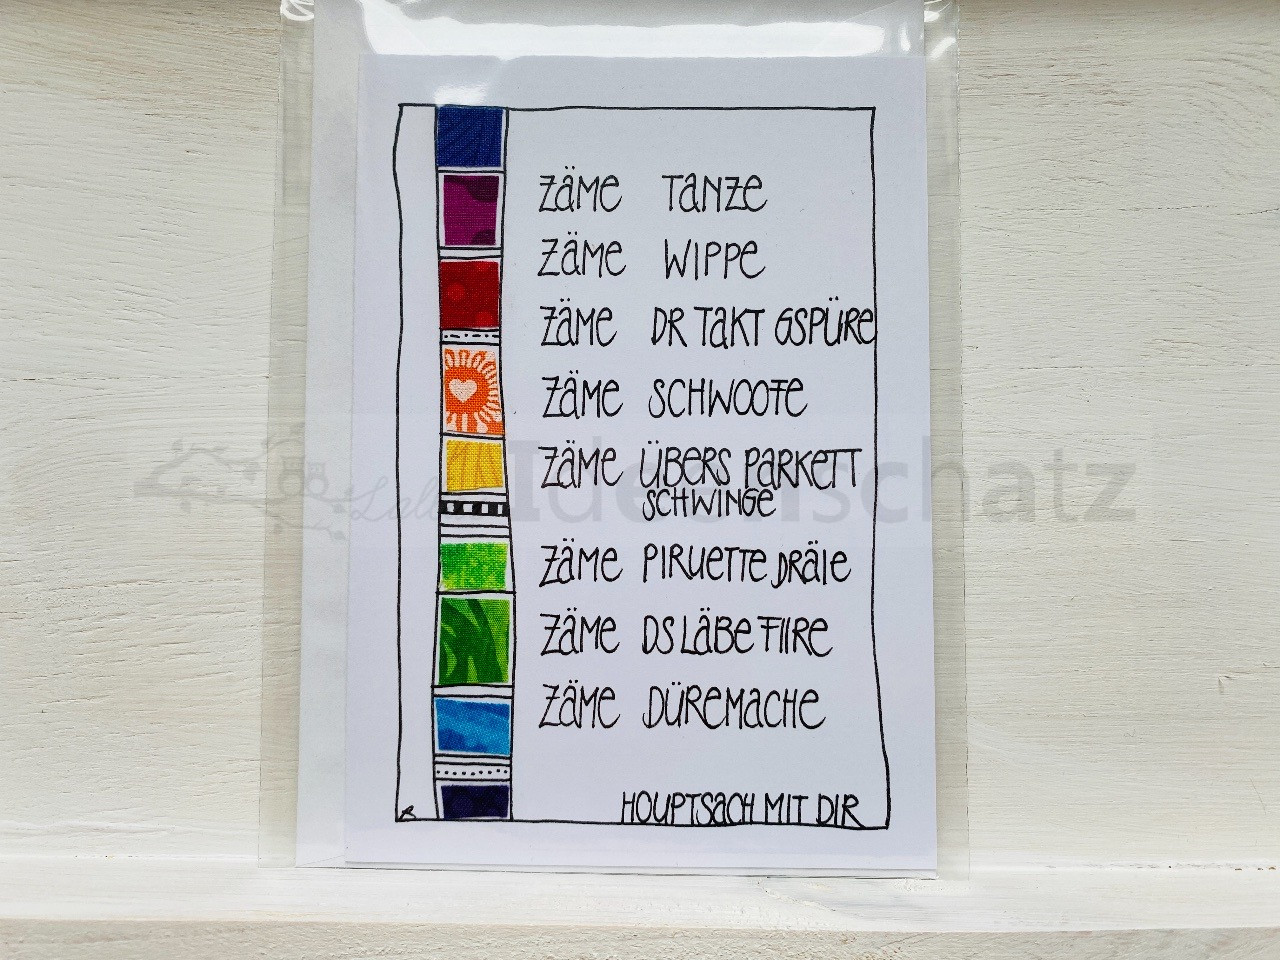 ZÄME TANZE
ZÄME WIPPE
ZÄME DR TAKT GSPÜRE
ZÄME SCHWOOFE
ZÄME ÜBERS PARKETT
SCHWINGE
ZÄME PIRUETTE DRÄIE
ZÄME DS LÄBE FIIRE
ZÄME DÜREMACHE
HOUPTSACH MIT DIR
Ideenschatz